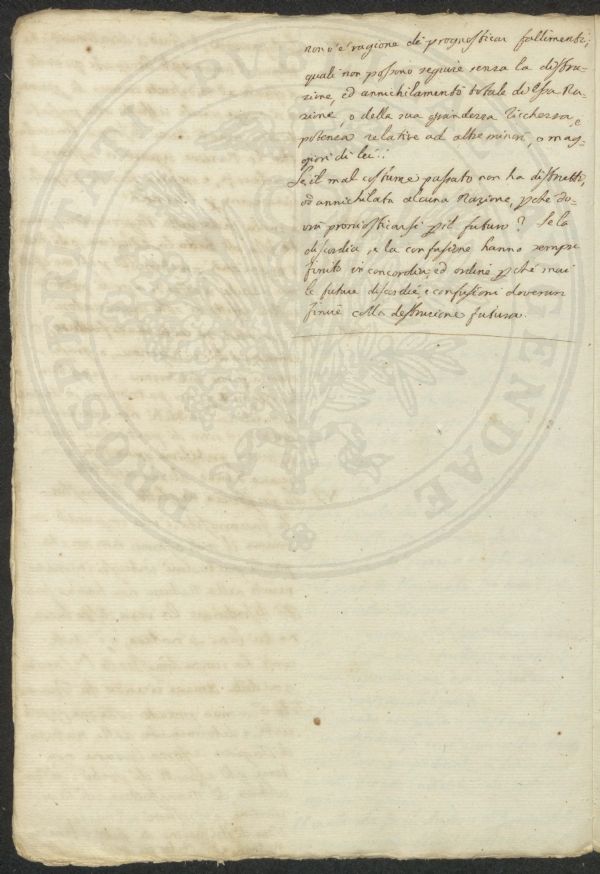 non v'è ragione di prognosticar fallimenti,
quali non possono seguire senza la distru-
zione, ed annichilamento totale di essa Na-
zione, o della sua grandezza, ricchezza, e
potenza relative ad altre minori, o mag-
giori di lei.
Se il mal costume passato non ha distrutta,
od annichilata alcuna Nazione, pchè do-
vrà pronosticarsi pil futuro? Se la
discordia, e la confusione hanno sempre
finito in concordia, ed ordine pchè mai
le future discordie, e confusioni doveran
finire colla destruzione futura.
PROSPERITATI PUBLICAE AUGENDAE